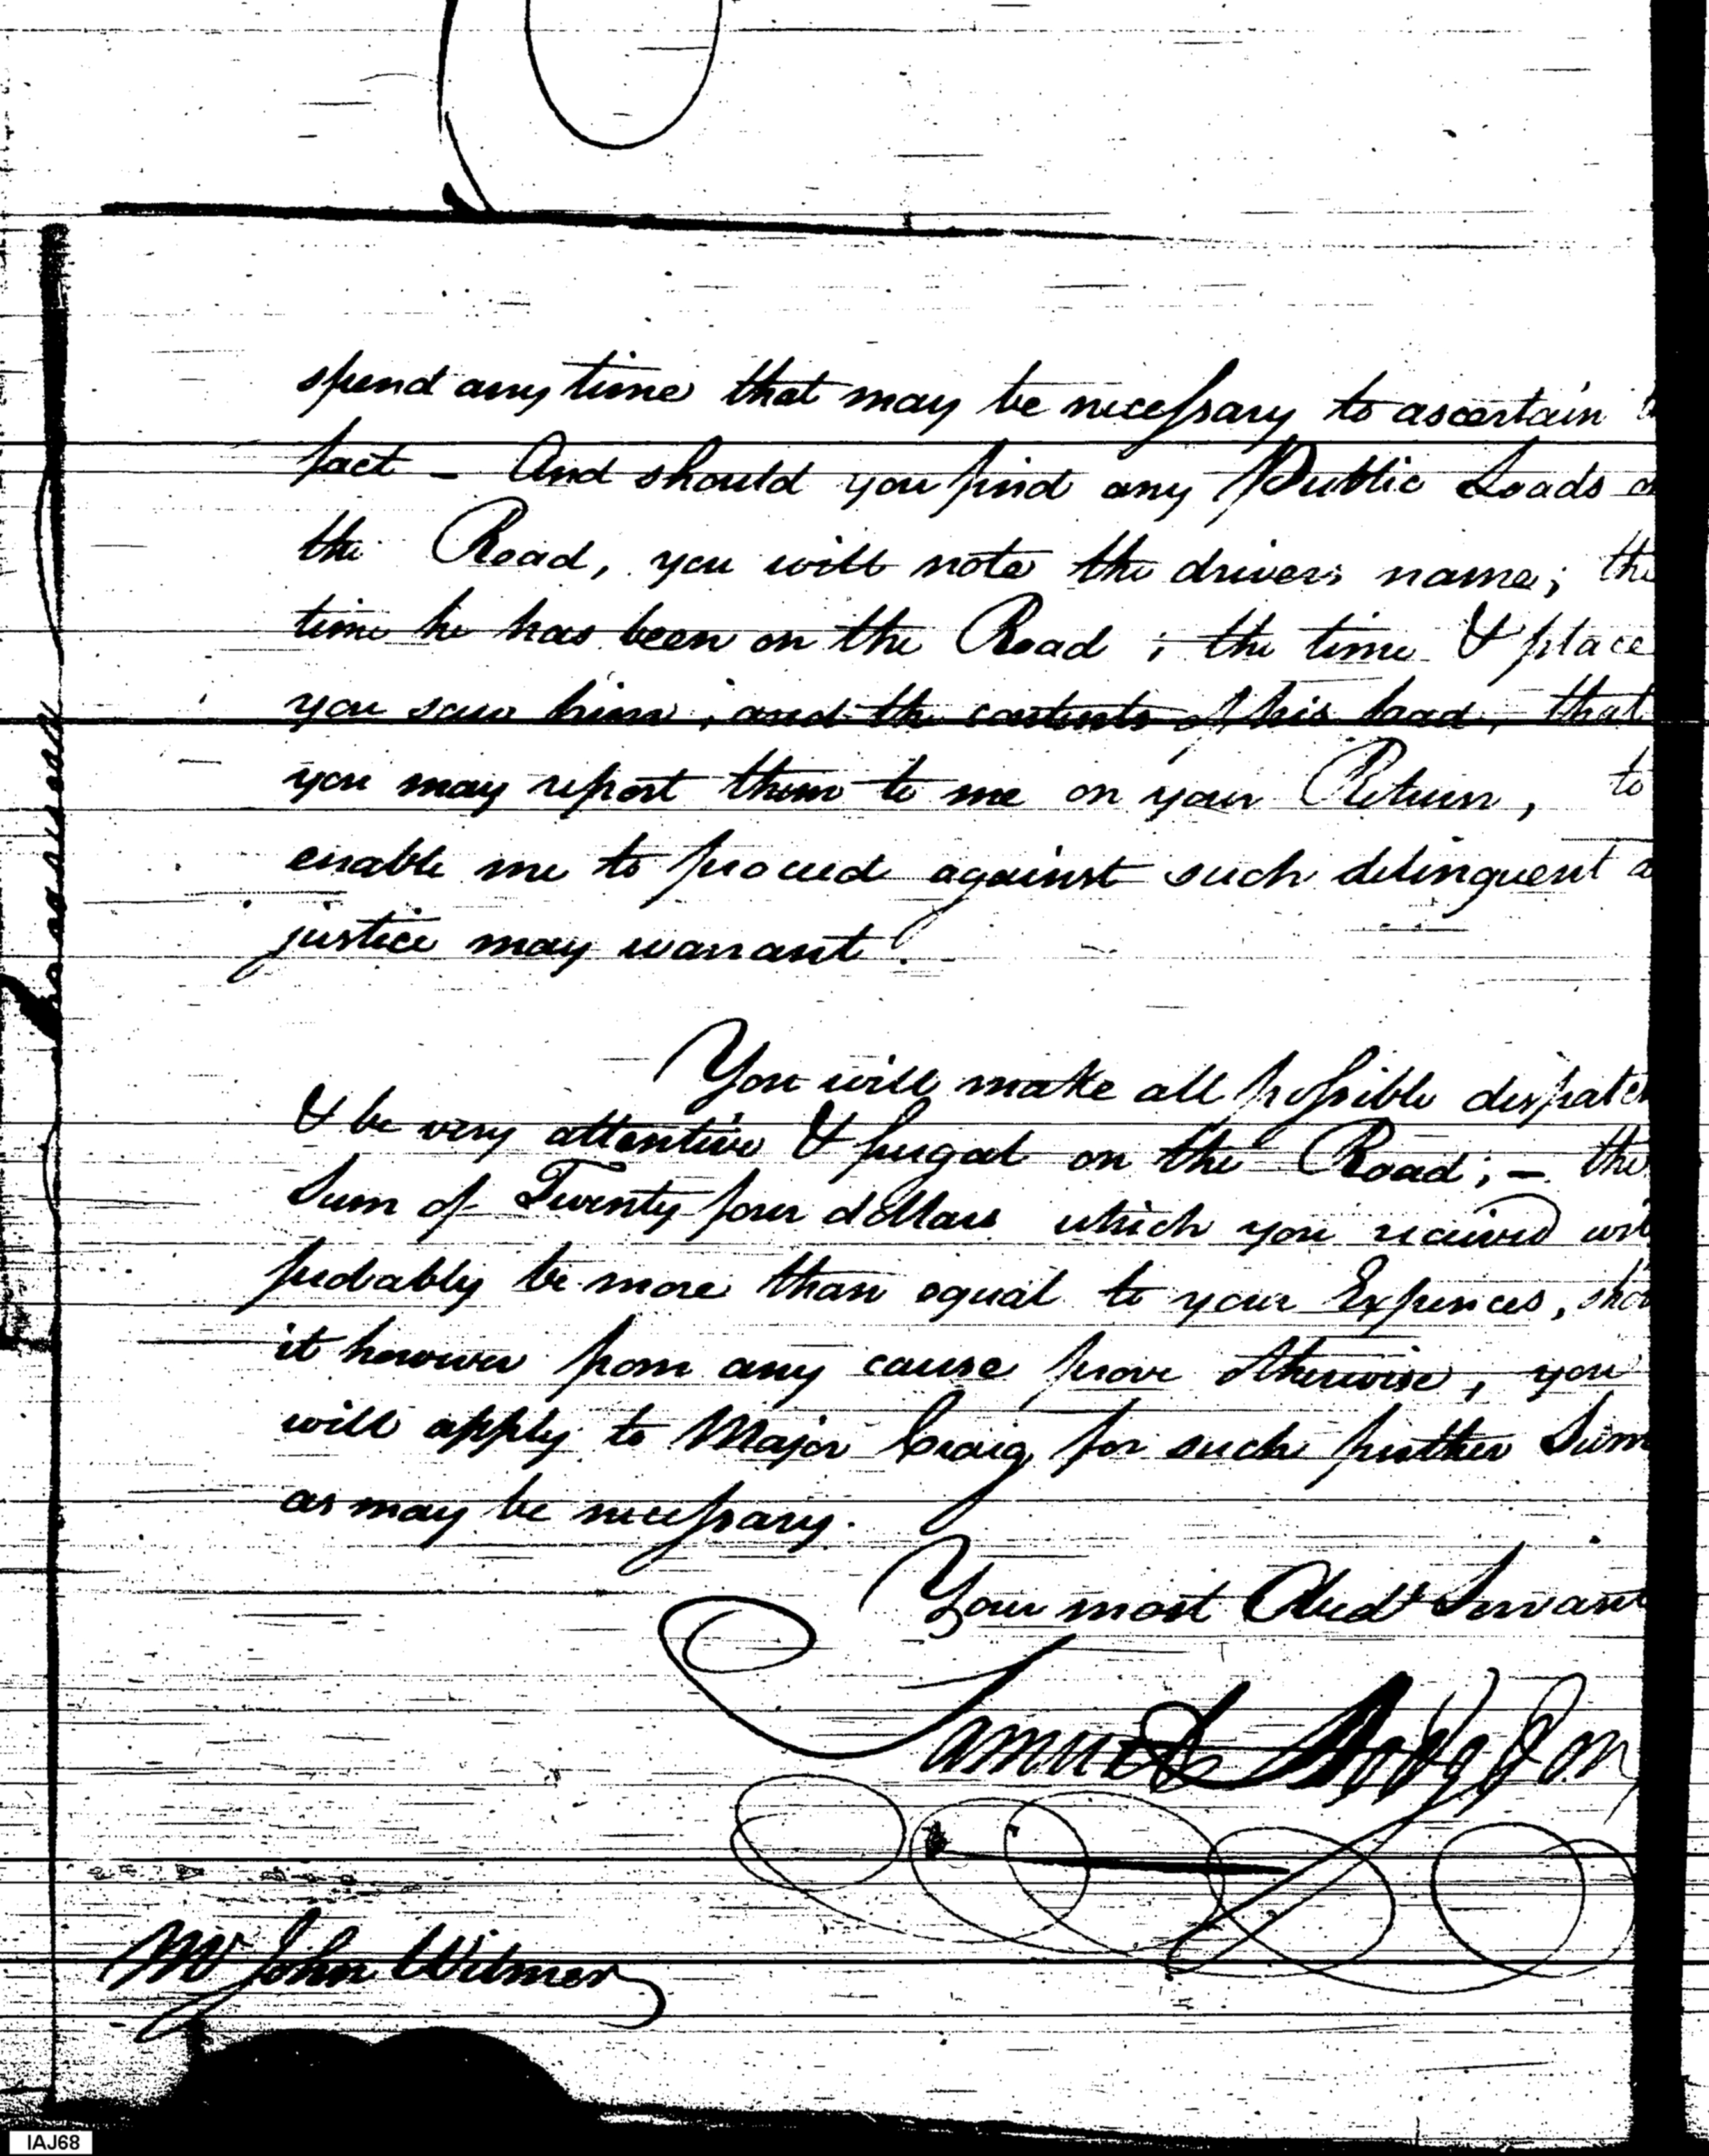 spend any time that may be necessary to ascertain
fact - And should you find any Public Loads
the Road, you will note the drivers name; the
time he has been on the Road; the time & place
you saw him; and the contents of his load, that
you may report them to me on your Return, to
enable me to proceed against such delinquent a
justice may warrant.
You will make all possible dispatch
& be very attentive & frugal on the Road; - the
Sum of Twenty four dollars which you received wil
probably be more than equal to your Expences, sho
it however from any cause prove otherwise, you
will apply to Major Craig for such further Sum
as may be necessary.
Your most Obedt Servant
Samuel Hodgdon
Mr John Witmer
IAJ68